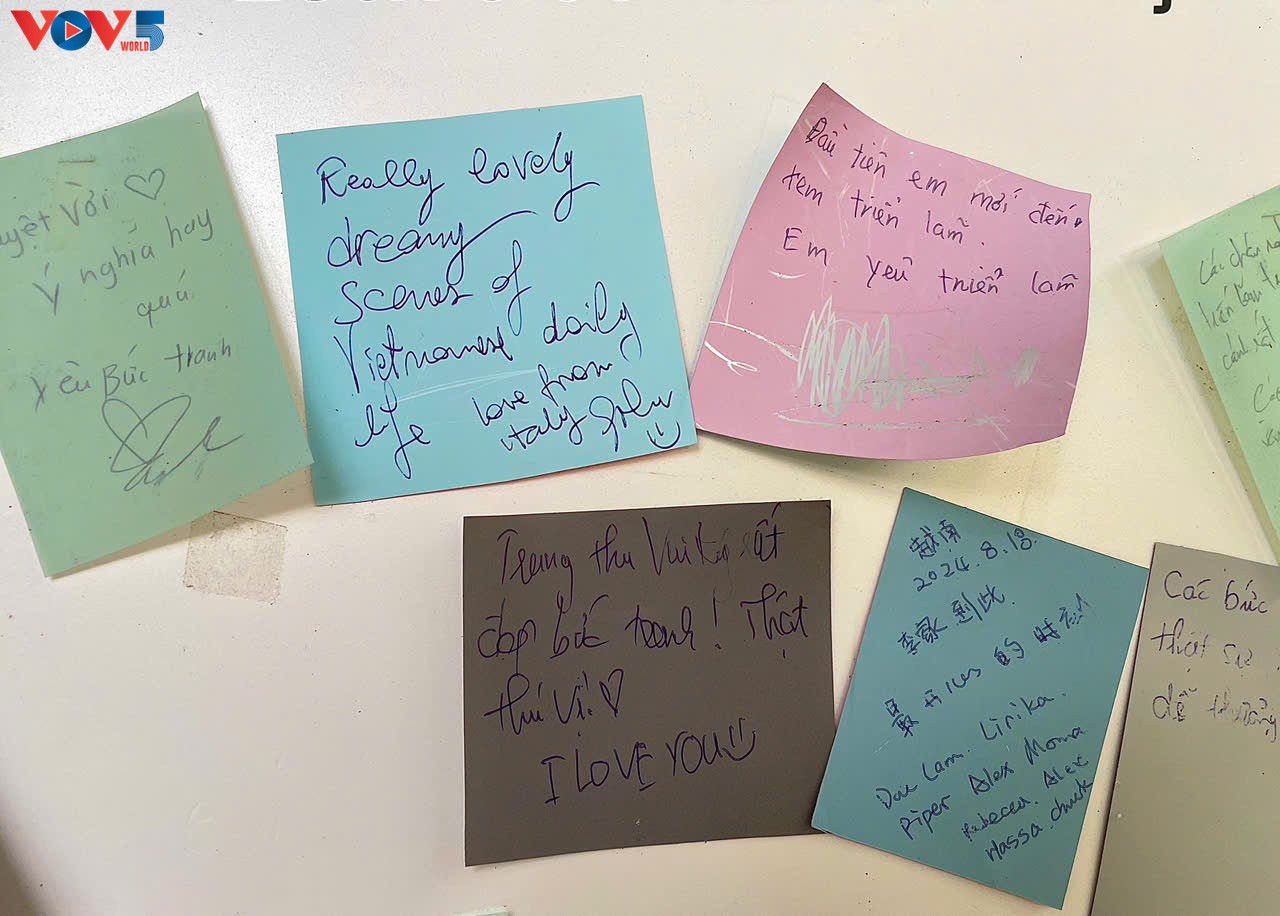 VOV5
WORLD
uyệt Vời ♡
Ý nghĩa hay
quá.
Yêu Bức tranh
Really lovely
dreamy
scenes of
Vietnamese daily
life love from
italy
Đầu tiên em mới đến
xem triển lãm.
Em yêu triển lãm
Trung thu Vui
rất
đẹp bức tranh! Thật
thú vị! ♡
I LOVE YOU
越南
2024.8.18.
李家到此.
最 的时刻
Lam. Lirika.
Piper Alex Moma
Rebecca. Alex
Hassa. chuck
Các bức
thật sự
dễ thương